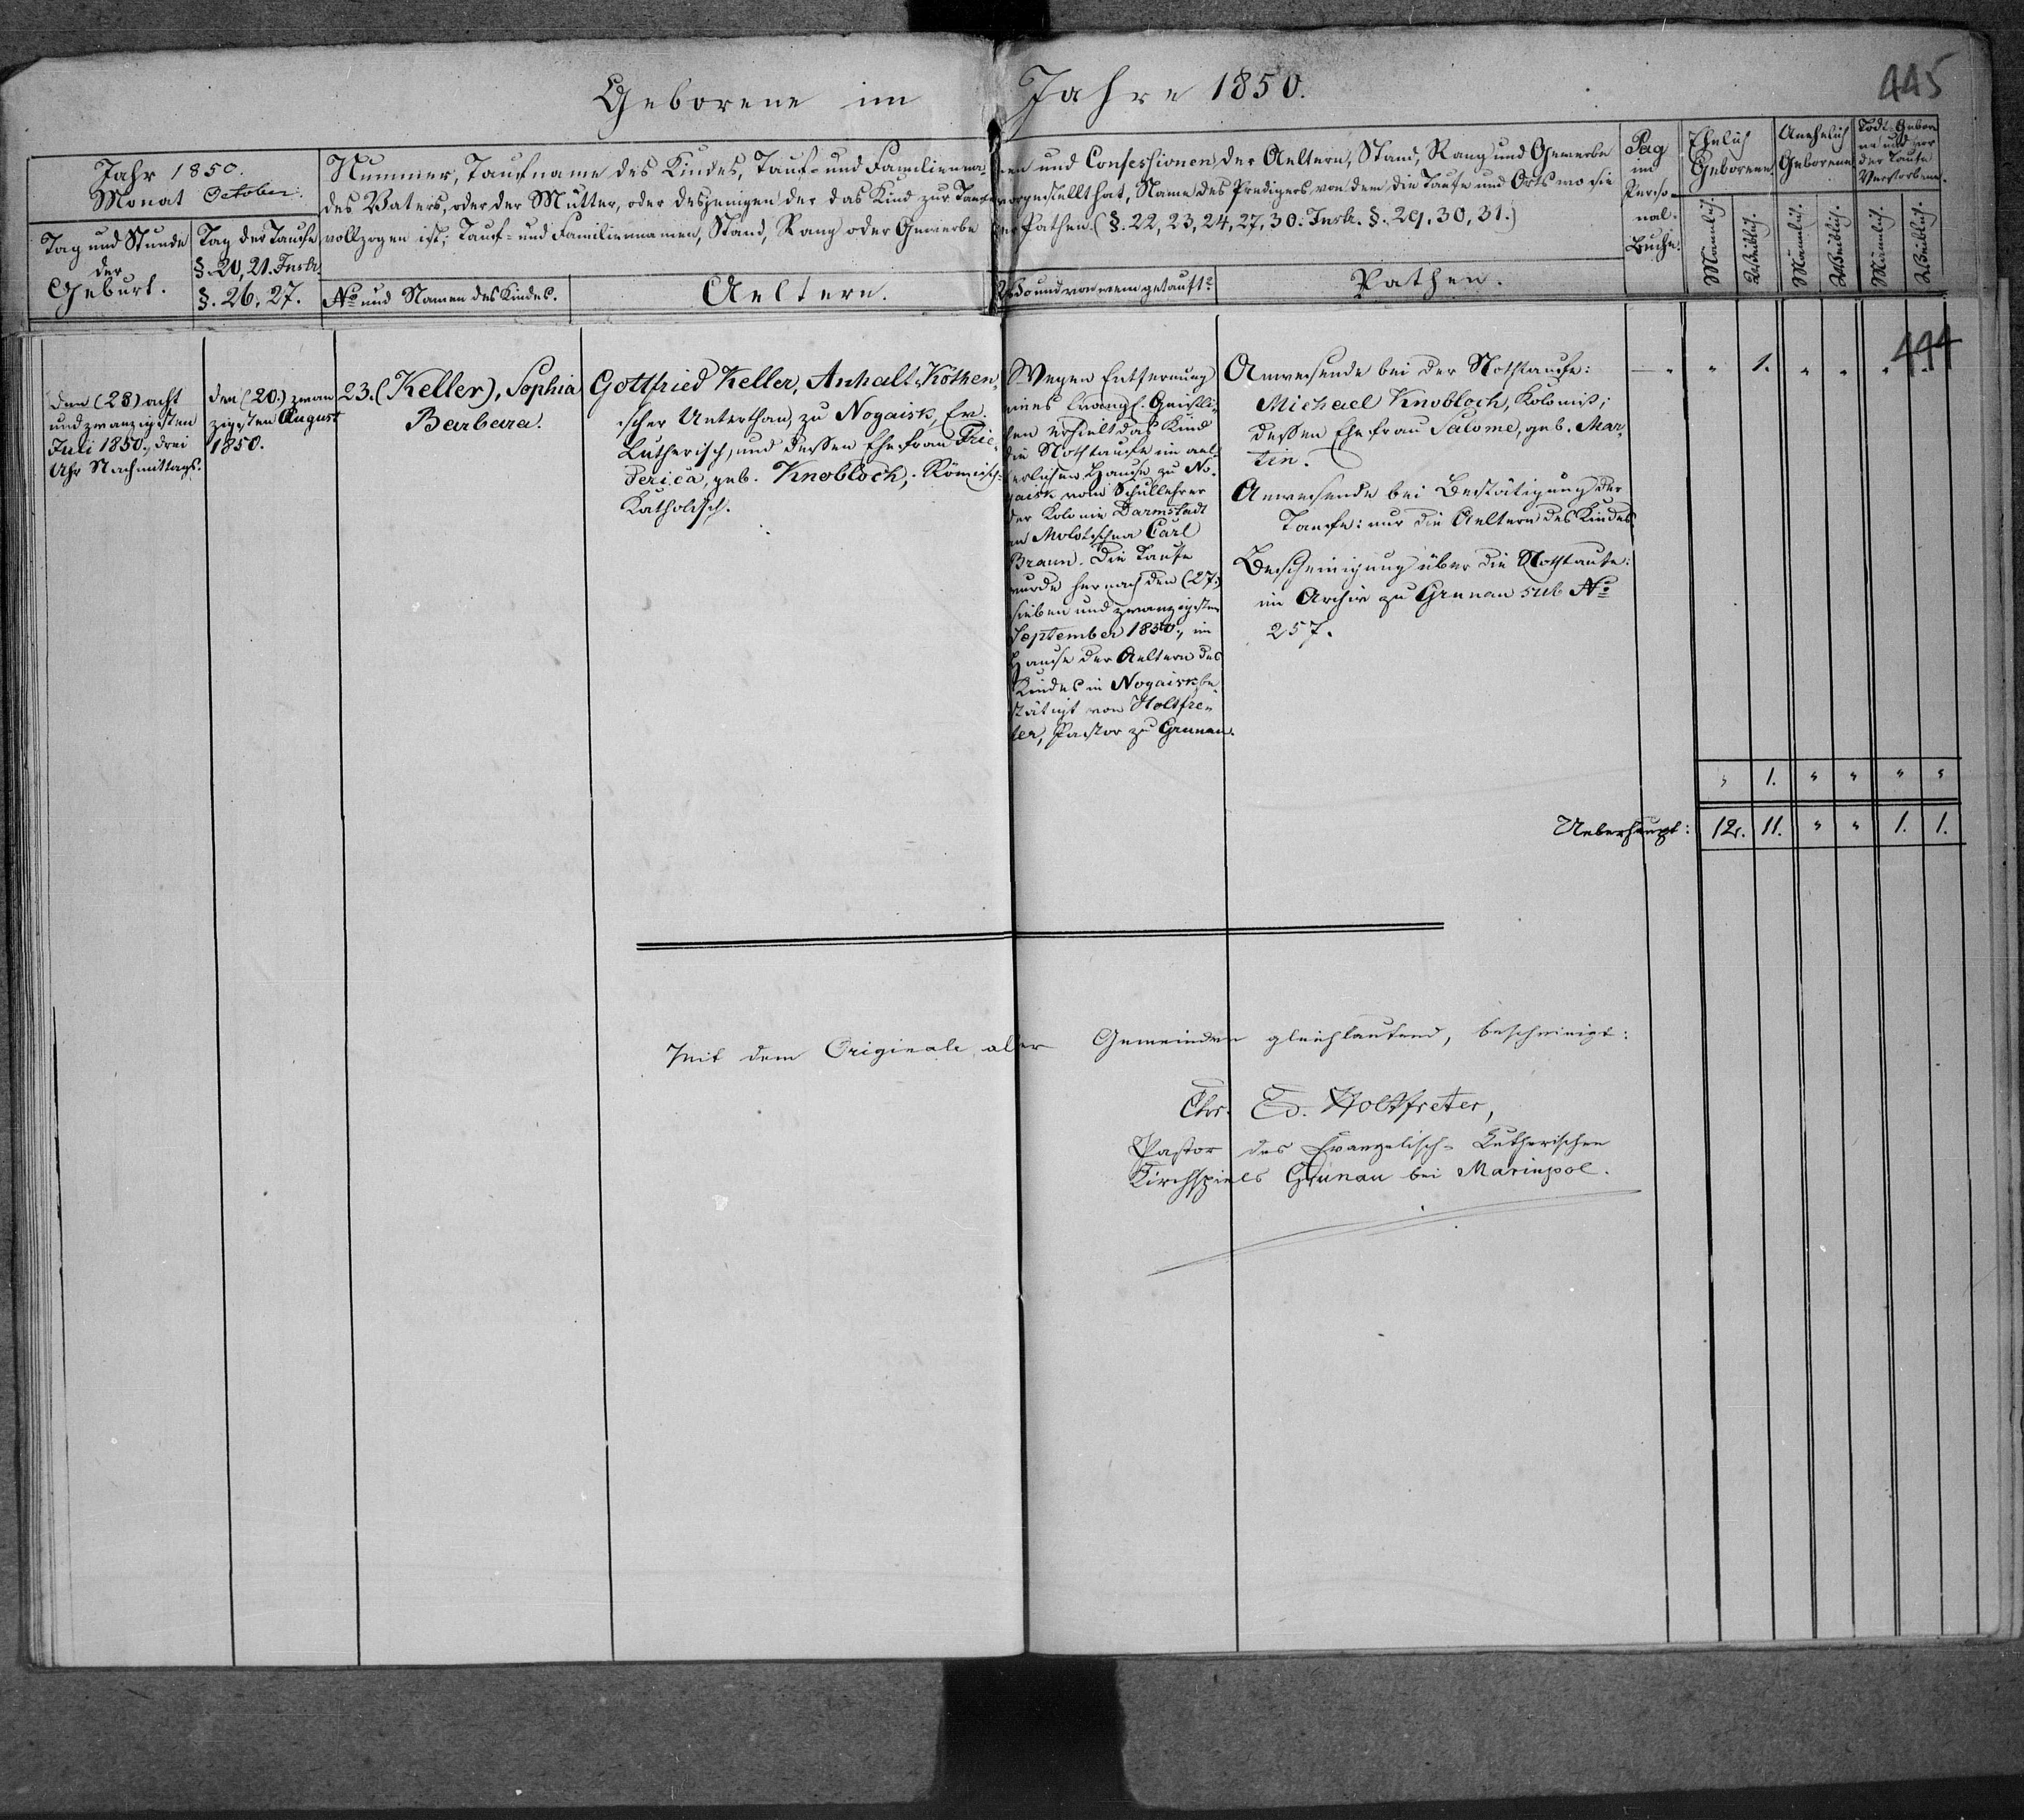 445
Geborene im Jahre 1850.
Jahr 1850.
Monat October.
Tag und Stunde
der
Geburt.
Tag der Taufe
§. 20, 21. Instr.
§. 26, 27.
Nummer, Taufname des Kindes, Tauf- und Familienna- men und Confessionen der Aeltern, Stand, Rang und Gewerbe
des Vaters, oder der Mutter, oder desjenigen der das Kind zur Taufe vorgestellt hat, Name des Predigers von dem die Taufe und Orts wo sie
vollzogen ist; Tauf- und Familiennamen, Stand, Rang oder Gewerbe der Pathen. (§. 22, 23, 24, 27, 30. Instr. §. 29. 30, 31.)
No und Namen des Kindes.
Aeltern.
Wo und von wem getauft?
Pathen.
Pag
im
Perso-
nal-
Buche.
Ehelich
Geborene.
Unehelich
Geborene
Todt-Gebore
ne und vor
der Taufe
Verstorbene.
Männlich.
Weiblich.
Männlich.
Weiblich.
Männlich.
Weiblich.
444
den (28) acht
und zwanzigsten
Juli 1850., drei
Uhr Nachmittags.
den (20.) zwan
zigsten August
1850.
23. (Keller), Sophia
Barbara.
Gottfried Keller, Anhalt-Köthen-
scher Unterthan, zu Nogaisk, Ev.
Lutherisch, und dessen Ehefrau Frie-
derica, geb. Knobloch, Römisch-
Katholisch.
Wegen Entfernung
eines Evangl. Geistli-
chen erhielt das Kind
die Nothtaufe im ael-
terlichen Hause zu No-
gaisk vom Schullehrer
der Kolonie Darmstadt
an Molotschna Carl
Braun. Die Taufe
wurde hernach den (27.)
sieben und zwanzigsten
September 1850., im
Hause der Aeltern des
Kindes in Nogaisk be-
stätigt von Holtfre-
ter, Pastor zu Grunau.
Anwesende bei der Nothtaufe:
Michael Knobloch, Kolonist;
dessen Ehefrau Salome, geb. Mar-
tin.
Anwesende bei Bestätigung der
Taufe: nur die Aeltern des Kindes.
Bescheinigung über die Nothtaufe:
im Archiv zu Grunau sub No
257.
— " " 1. " " " "
" 1. " " " "
Ueberhaupt: 12. 11. " " 1. 1.
Mit dem Originale aller Gemeinden gleichlautend, bescheinigt:
Chr. Ed. Holtfreter,
Pastor des Evangelisch-Lutherischen
Kirchspiels Grunau bei Mariupol.